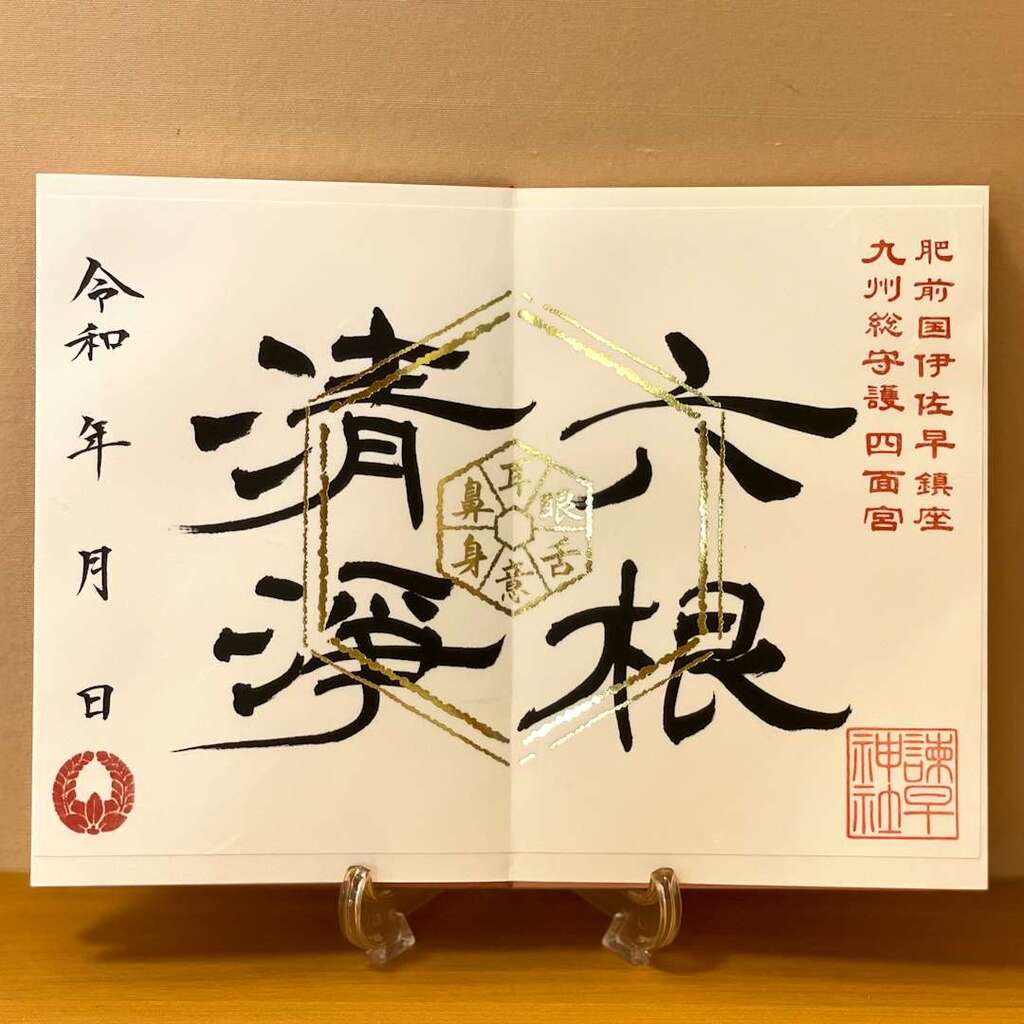 肥前国伊佐早鎮座
九州総守護 四面宮
六根
清浄
耳
眼
舌
意
身
鼻
諫早
神社
令和 年 月 日